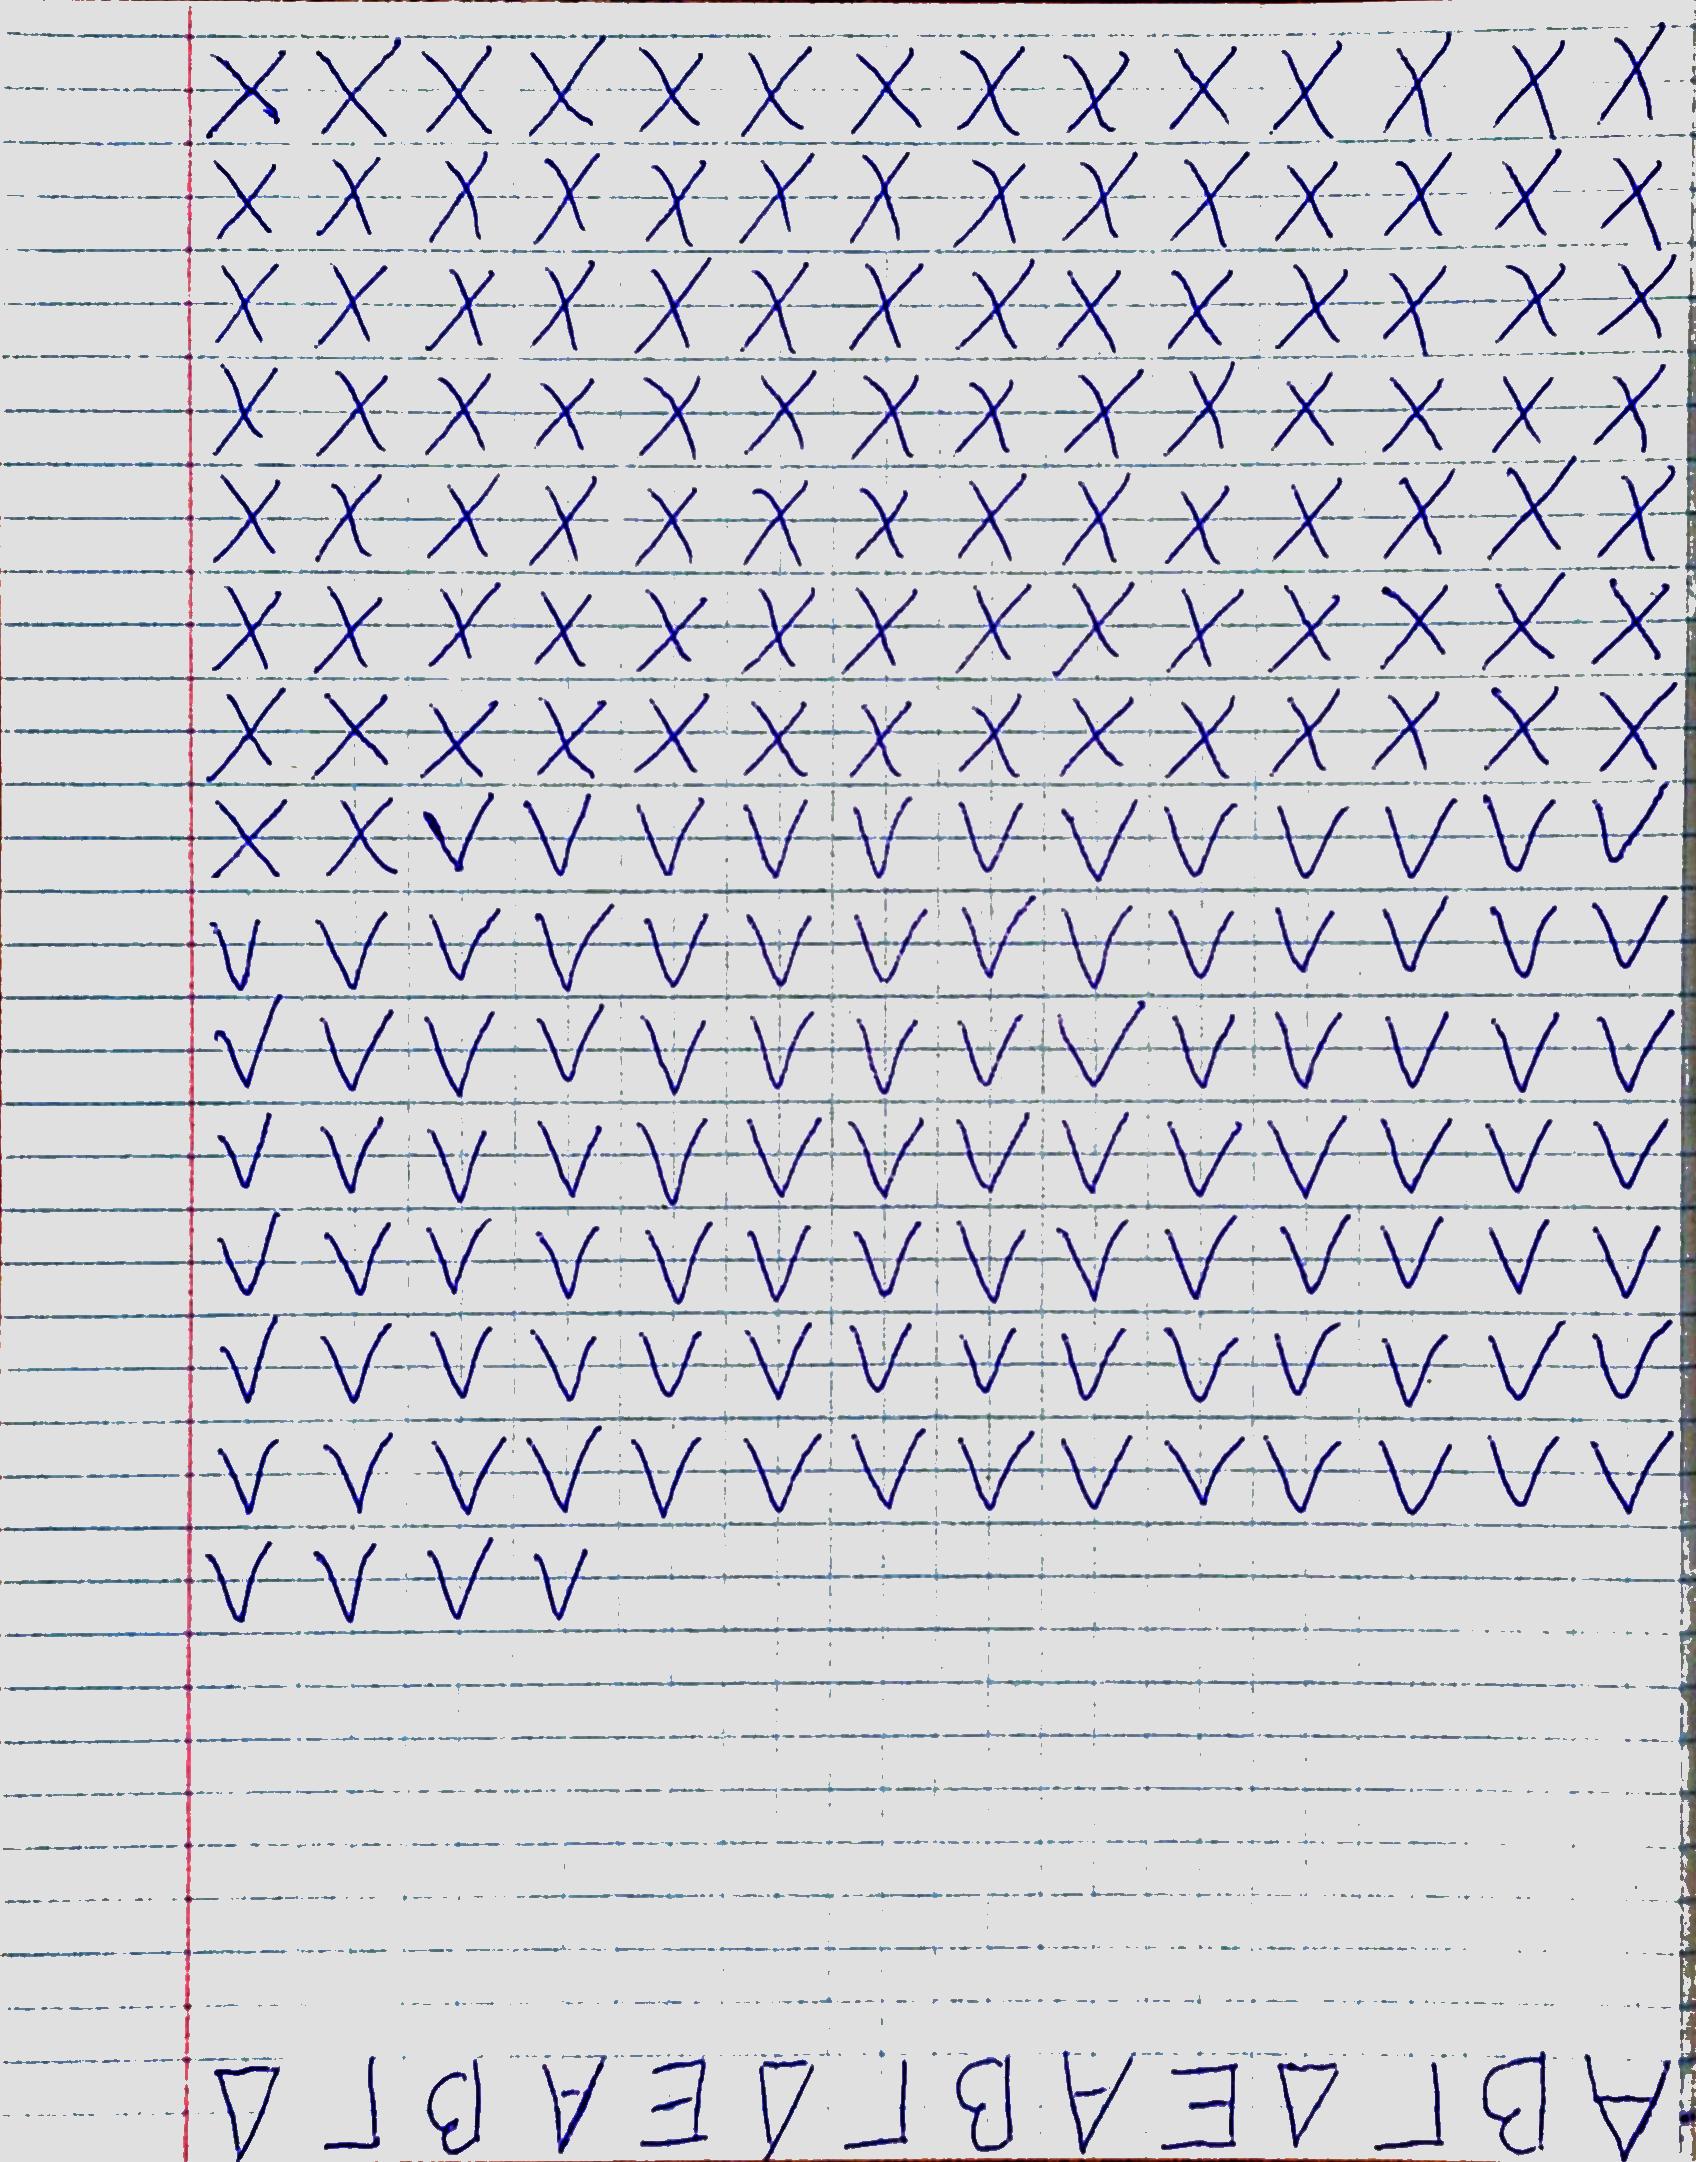 X X X X X X X X X X X X X X
X X X X X X X X X X X X X X
X X X X X X X X X X X X X X
X X X X X X X X X X X X X X
X X X X X X X X X X X X X X
X X X X X X X X X X X X X X
X X X X X X X X X X X X X X
X X V V V V V V V V V V V V
V V V V V V V V V V V V V V
V V V V V V V V V V V V V V
V V V V V V V V V V V V V V
V V V V V V V V V V V V V V
V V V V V V V V V V V V V V
V V V V V V V V V V V V V V
V V V V
Α Β Γ Δ Ε Α Β Γ Δ Ε Α Β Γ Δ